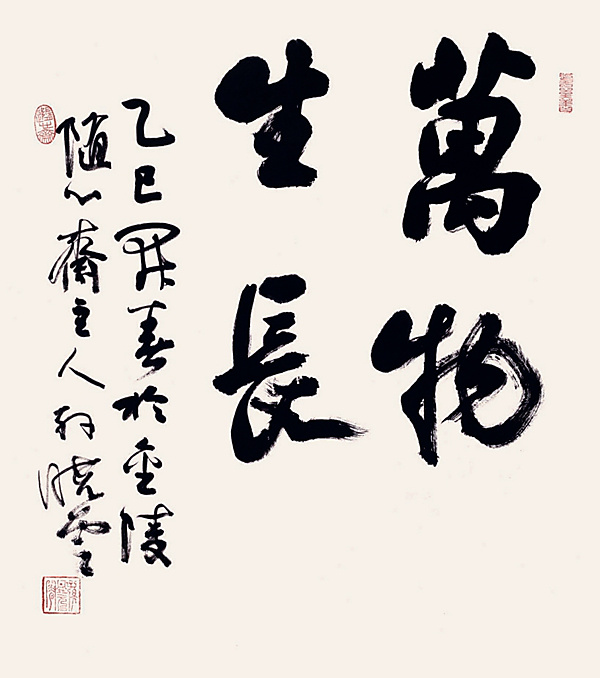 萬物
生長
乙巳開春於金陵
隨心齋主人曉雲